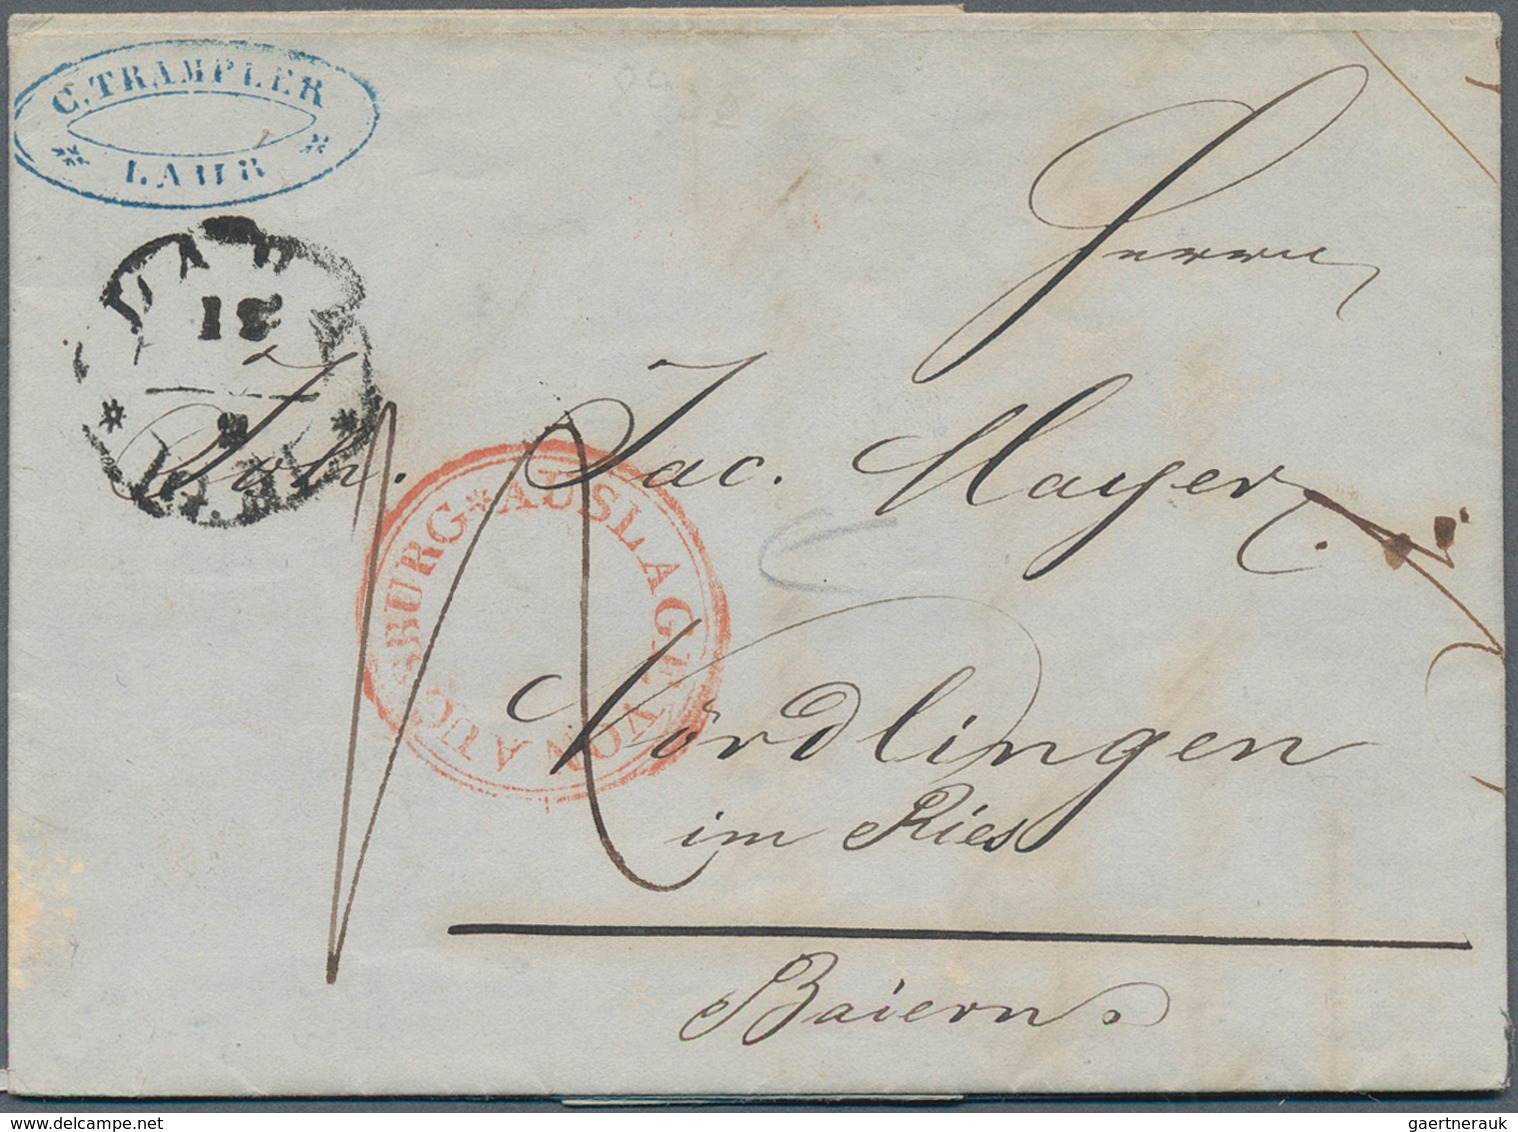 C. TRAMPLER
LAHR
12
Herrn
Joh. Jac. Mayer.
AUSLAGE VON AUGSBURG
Nördlingen
im Ries
Baiern.
gaertnerauk
www.delcampe.net